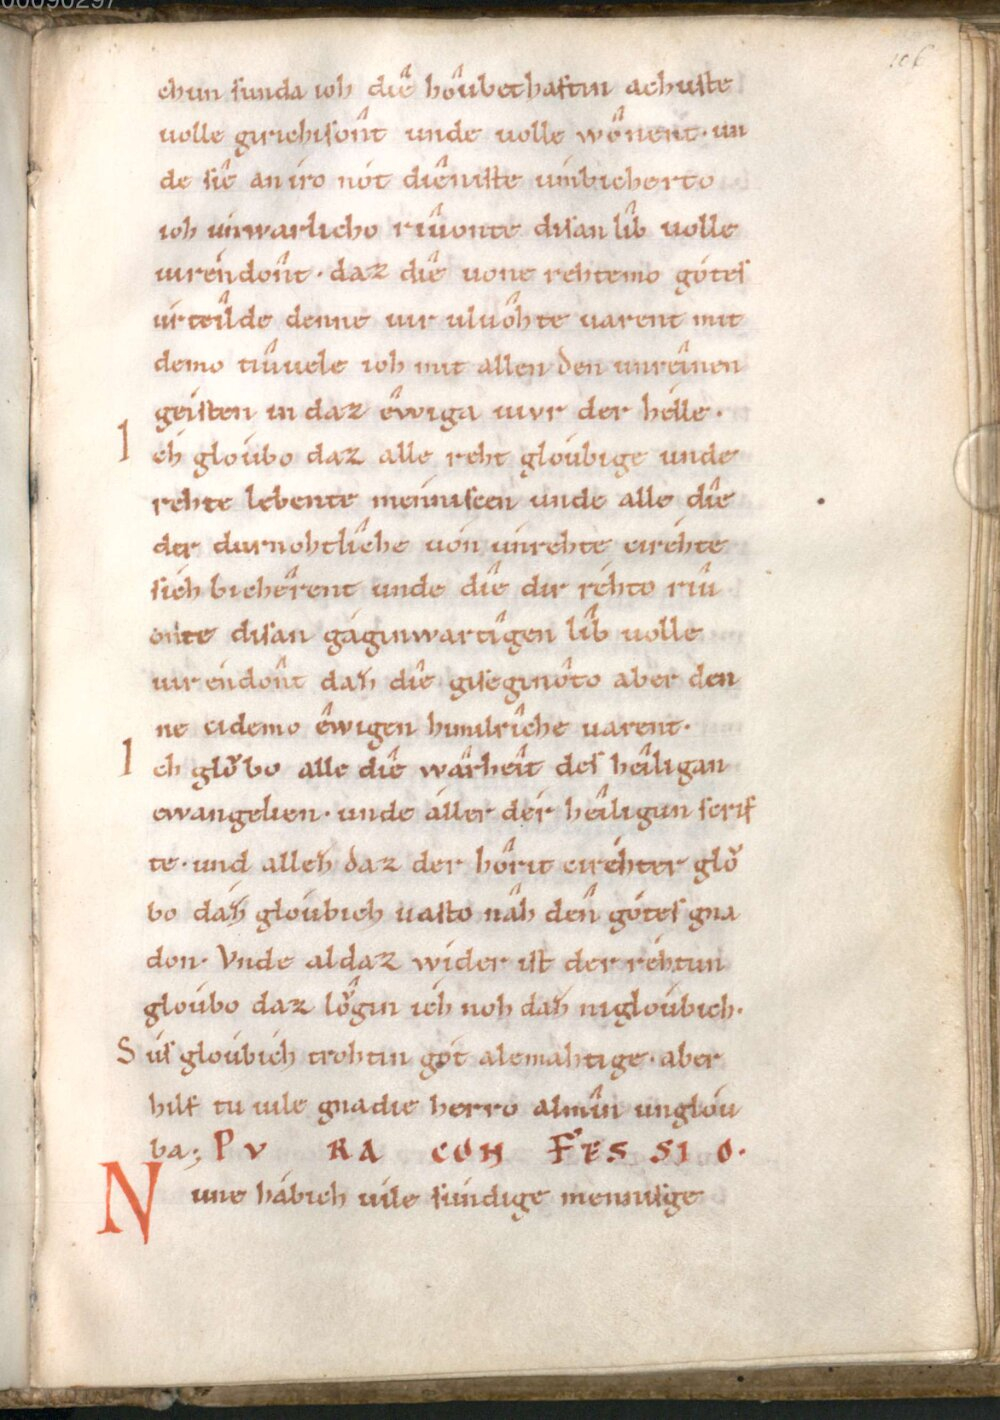 00090297
106
chun sunda ioh diê hoûbethaftin achuste
uolle girichisoñt unde uolle wônent· un
de siê an iro nôt diêniste umbicherto
ioh unwarlicho riûonte disan lîb uolle
uiréndoñt· daz diê uone rehtemo gótes
úrteilde denne uir uluôhte uarent mit
demo tiûuele ioh mit allen den unreînen
geisten in daz êwiga uivr der hélle·
I ch gloúbo daz alle reht gloúbige unde
rehte lebente ménniscen unde alle diê
der durnohtlîche uón únrehte cirehte
sich bichêrent unde diê dir réhto riû
onte disan gáginwartîgen lîb uolle
uiréndoñt dah diê giseginôto aber den
ne cidemo êwigen himilrîche uarent·
I ch glŏbo alle diê wârheît des heîligan
ewangelien· unde áller dér heîligun scrif
te· und alleh daz der hôrit cirehter glŏ
bo dáh gloúbich uasto nâh den gótes gna
don· Vnde aldaz wider ist der réhtun
gloúbo daz lŏgin ich noh dah nigloúbich·
S ús gloúbich trohtin gót alemahtige· aber
hilf tu uile gnadie herro almîn unglóu
ba; PV RA CON FES SI O·
N une hábich uîle súndige mennisge